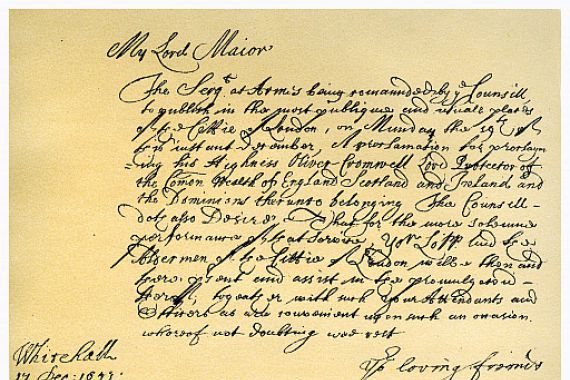 My Lord Maior
The Serg.t at Armes being comaunded by ye Counsill
to publish in the most publique and usuale places
of the Cittie of London, on Munday the 19th of
this instant December, A proclamation for proclam
=ing his Highness Oliver Cromwell Lord Protector of
the Comon Wealth of England Scotland and Ireland and
the Dominions thereunto belonging The Counsill -
doth also Desire That for the more solemne
performance of that service, Yor Lopp and the
Aldermen of the Cittie of London wilbe then and
there present and assist in the promulgation -
thereof, togeather with such your Attendants and
Officers as are convenient upon such an occasion.
whereof not doubting wee rest
Whitehall
17 Dec: 1653:
Yor loving friends